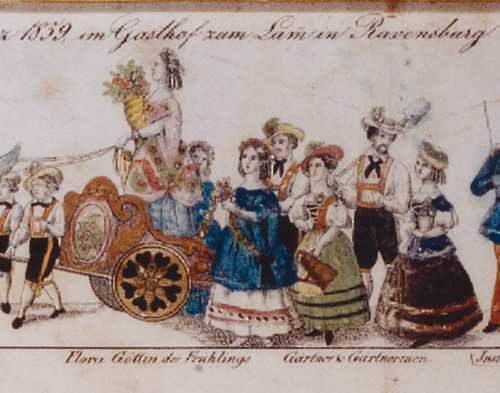 z 1839, im Gasthof zum Lam̅ in Ravensburg
Flora Göttin des Frühlings Gärtner & Gärtnerinen. Inst